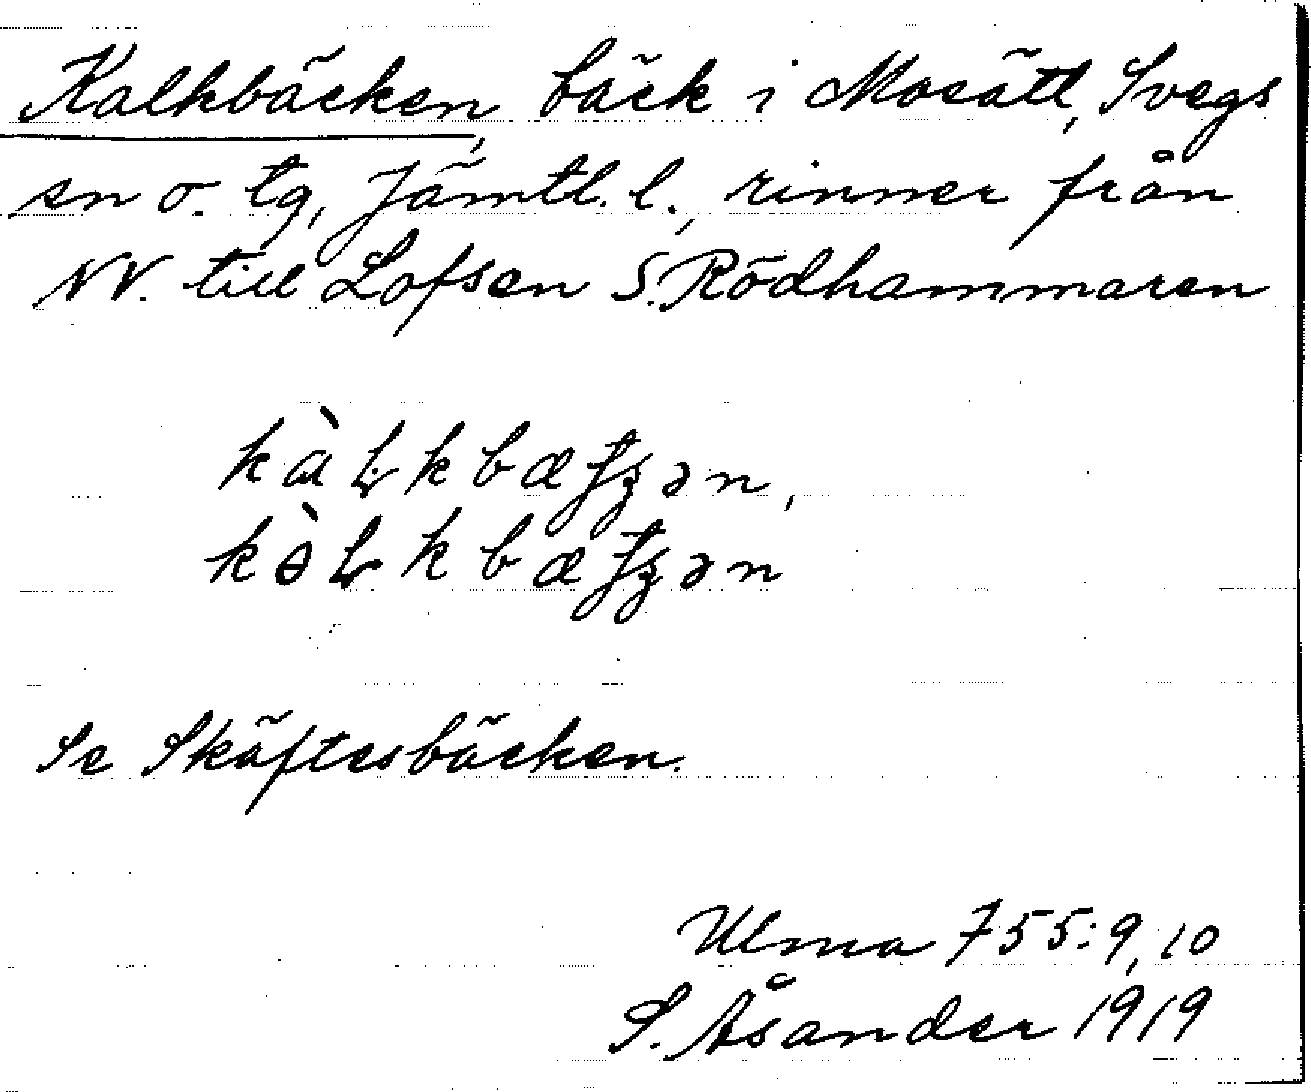 Kalkbäcken, bäck i Mosätt, Svegs
sn o. tg, Jämtl. l., rinner från
NV. till Lofsen S. Rödhammaren
Se Skäftesbäcken.
Ulma 755:9, 10
S. Åsander 1919